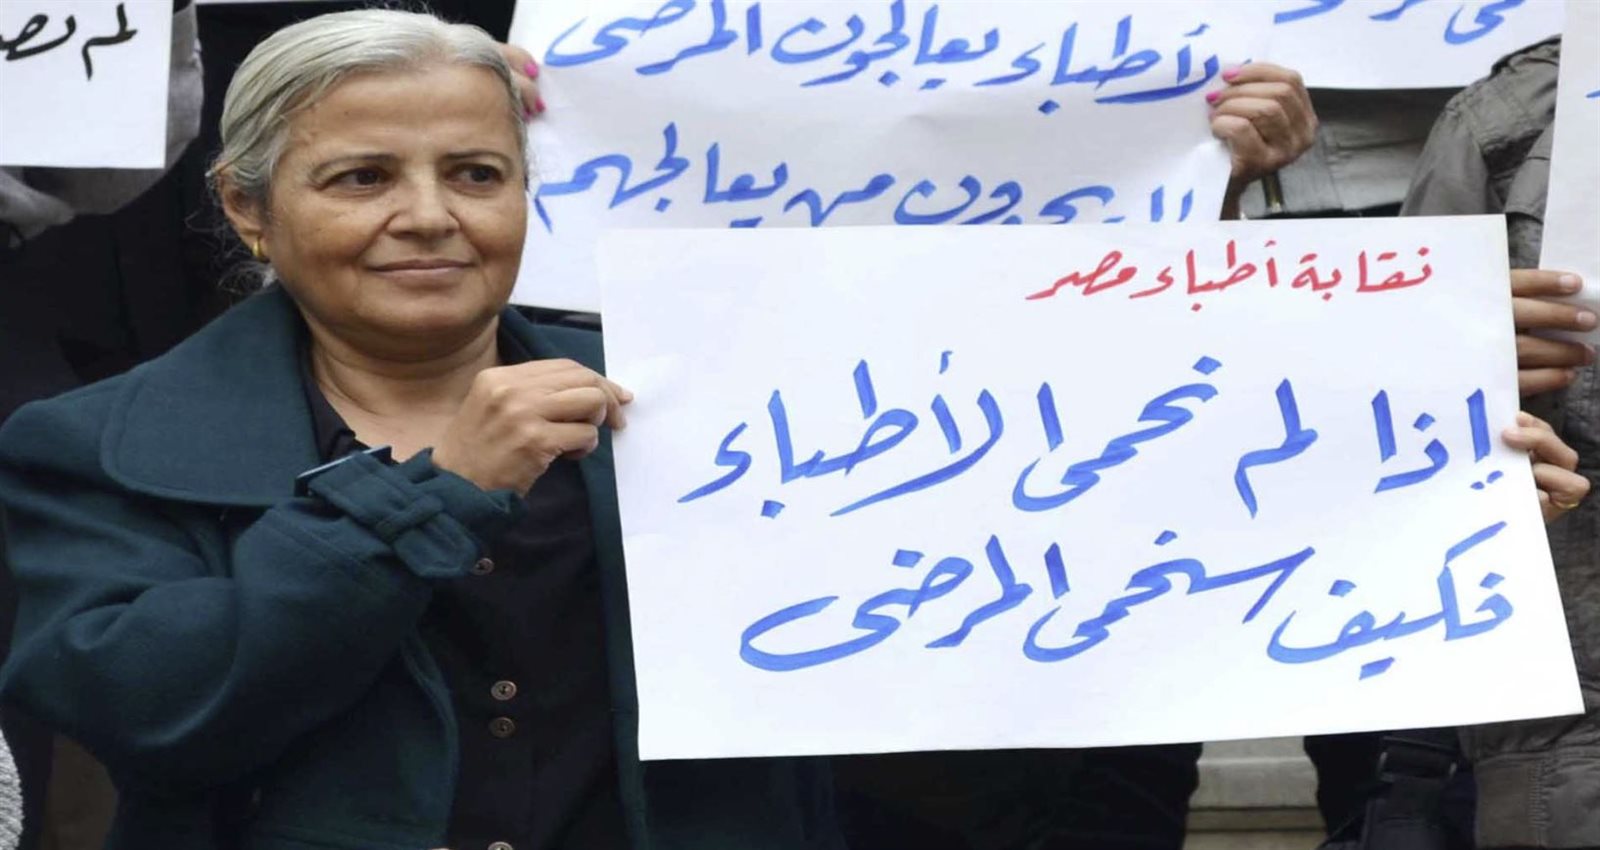 لم نصر
لأطباء يعالجون المرضى
لا يجدون من يعالجهم
نقابة أطباء مصر
إذا لم نحمى الأطباء
فكيف سنحمى المرضى